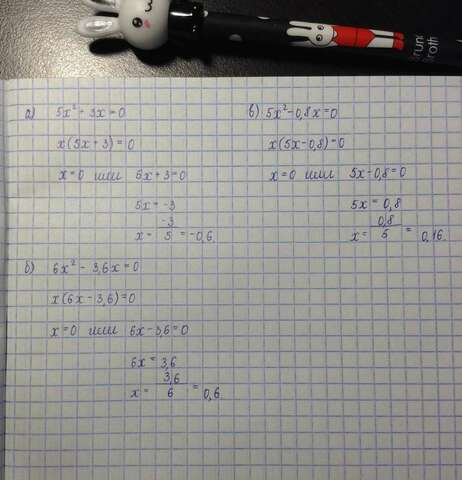 а) 5x² + 3x = 0
x(5x + 3) = 0
x = 0 или 5x + 3 = 0
5x = -3
x = -3/5 = -0,6
б) 6x² - 3,6x = 0
x(6x - 3,6) = 0
x = 0 или 6x - 3,6 = 0
6x = 3,6
x = 3,6/6 = 0,6
в) 5x² - 0,8x = 0
x(5x - 0,8) = 0
x = 0 или 5x - 0,8 = 0
5x = 0,8
x = 0,8/5 = 0,16